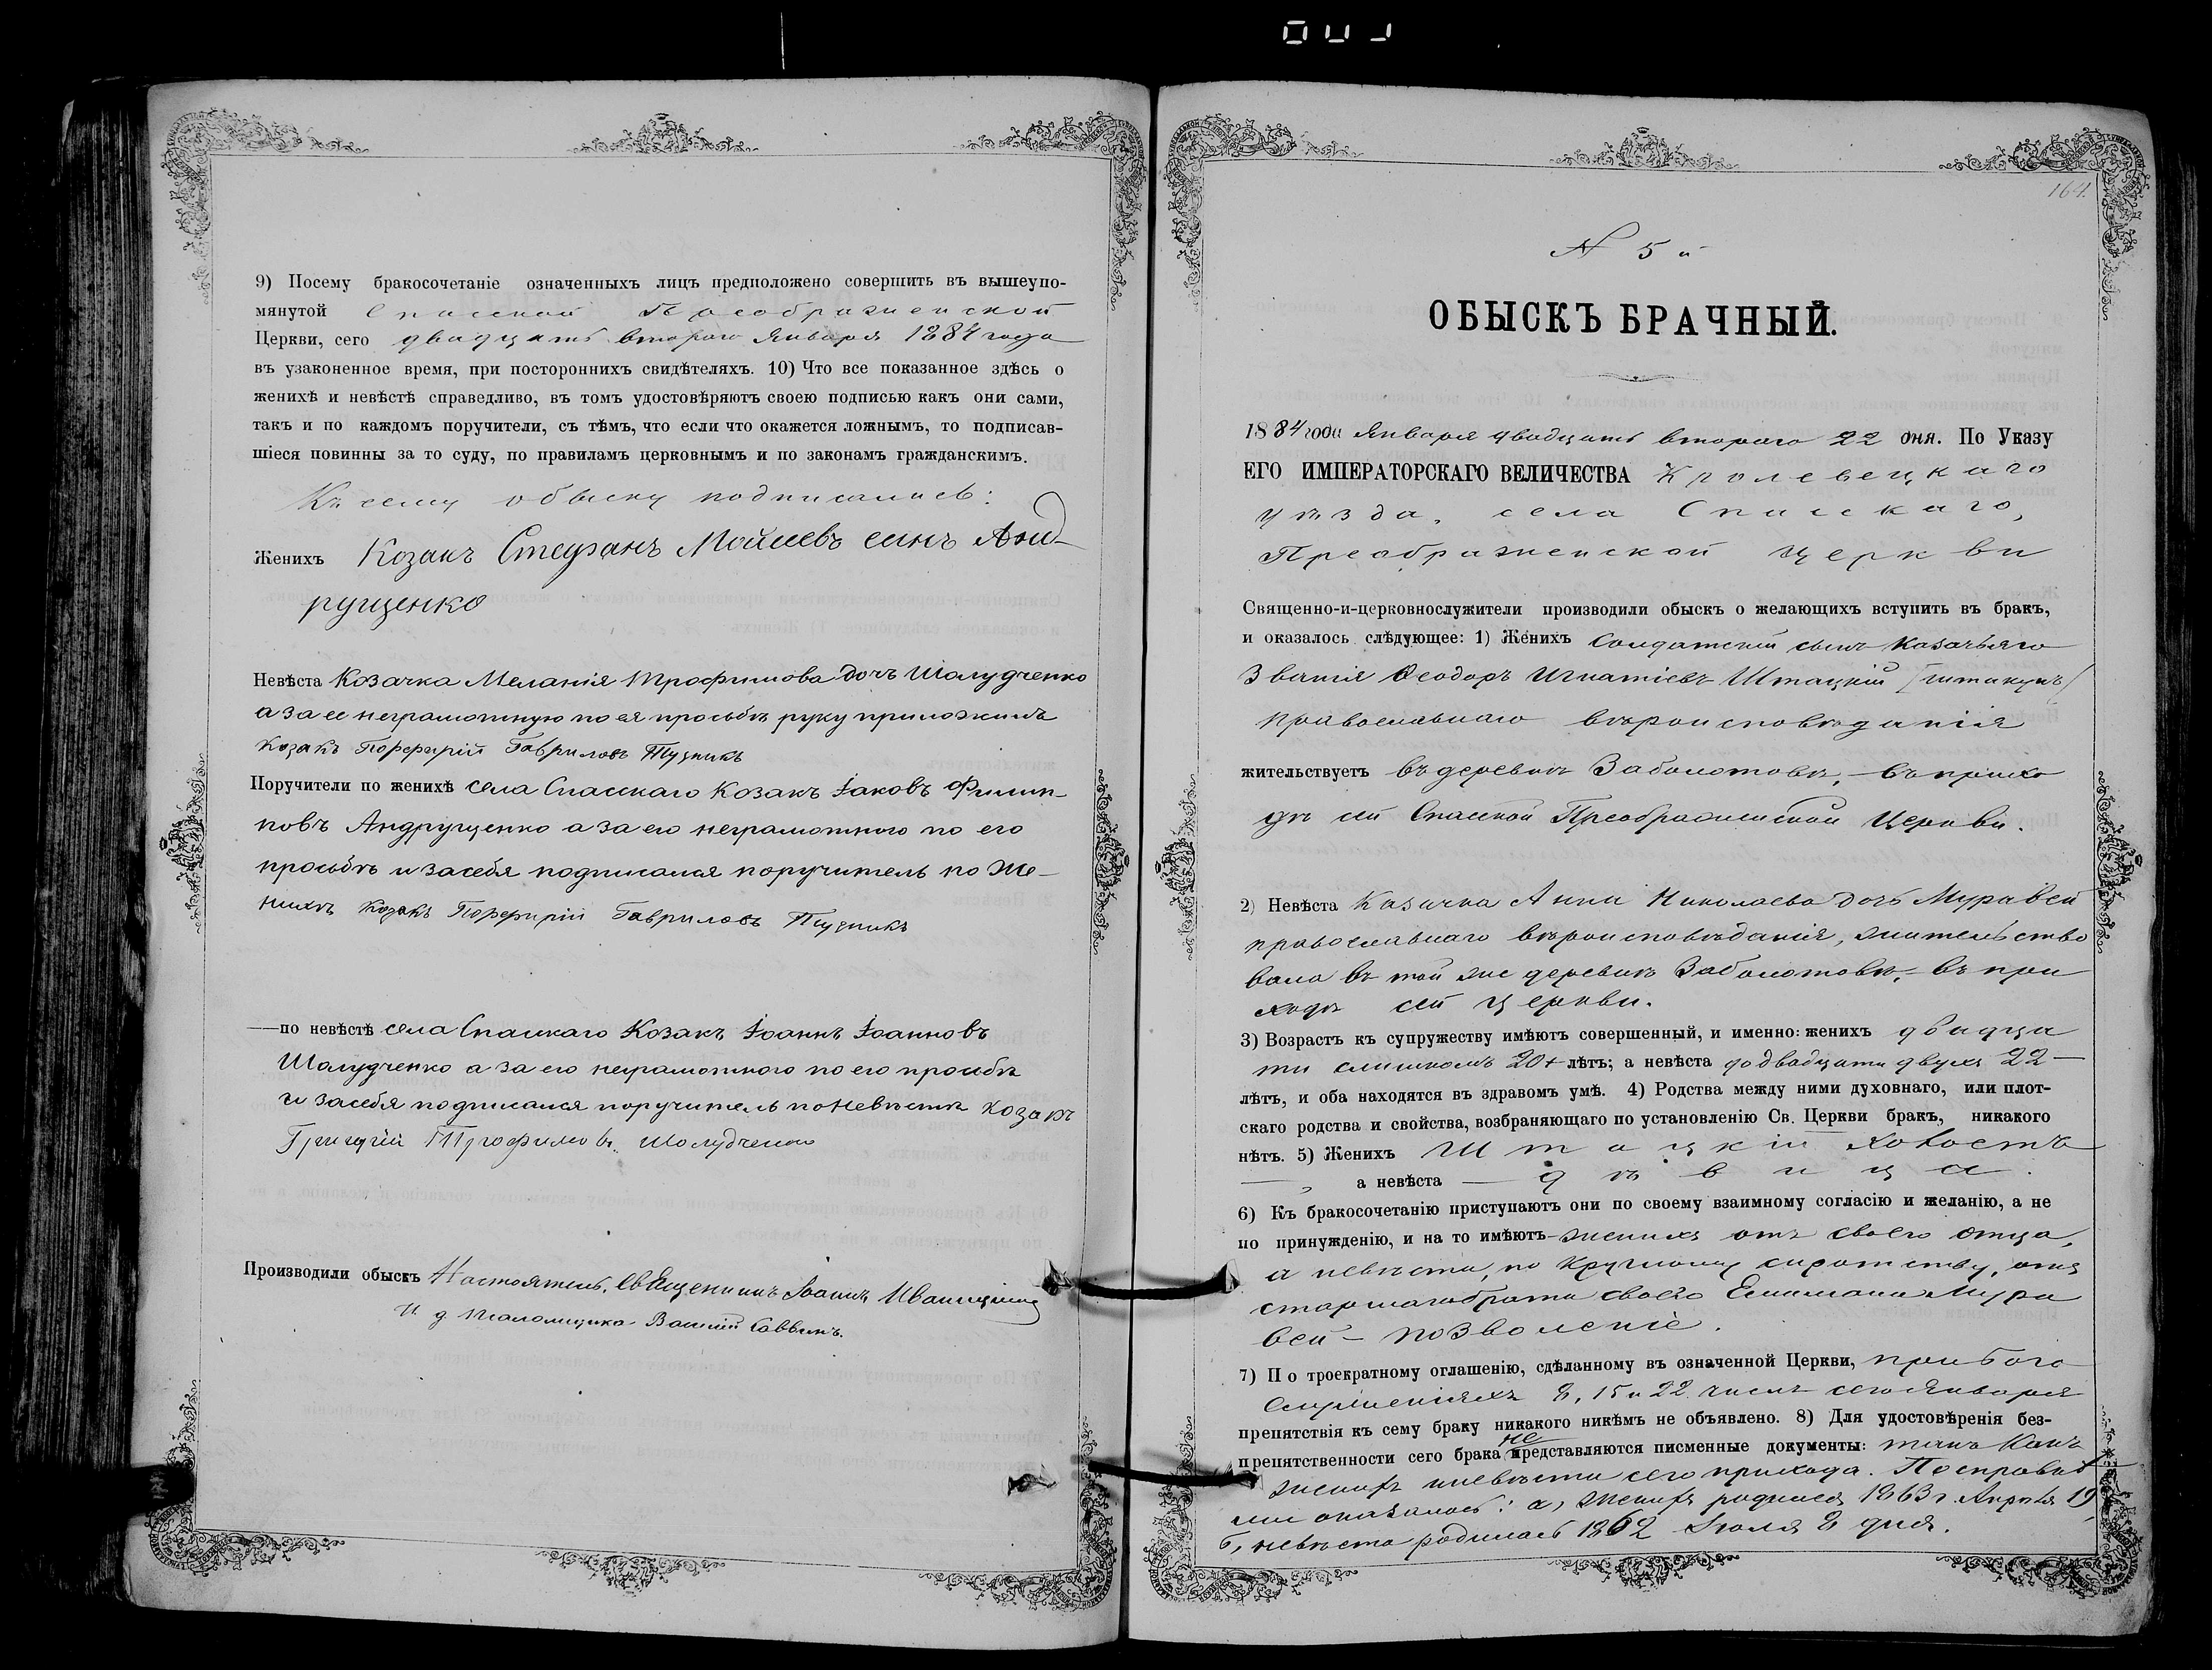 9) Посему бракосочетаніе означенныхъ лицъ предположено совершить въ вышеупо-
мянутой Спасской Преображенской
Церкви, сего двадцать второго Января 1884 года
въ узаконенное время, при постороннихъ свидѣтеляхъ. 10) Что все показанное здѣсь о
женихѣ и невѣстѣ справедливо, въ томъ удостовѣряютъ своею подписью какъ они сами,
такъ и по каждомъ поручители, съ тѣмъ, что если что окажется ложнымъ, то подписав-
шіеся повинны за то суду, по правиламъ церковнымъ и по законамъ гражданскимъ.
Къ сему обыску подписались:
Женихъ Козакъ Стефанъ Мойсеевъ синъ Анд-
рущенко
Невѣста Козачка Меланія Трофимова дочъ Шолудченко
а за ее неграмотную по ея просьбѣ руку приложилъ
Козакъ Порфирій Гавриловъ Пузникъ
Поручители по женихѣ села Спасскаго Козакъ Іаковъ Филип-
повъ Андрущенко а за его неграмотного по его
просьбѣ и засебя подписался поручитель по Же-
нихѣ Козакъ Порфирій Гавриловъ Пузникъ
—по невѣстѣ села Спаскаго Козакъ Іоаннъ Іоанновъ
Шолудченко а за его неграмотного по его просбѣ
и засебя подписался поручитель по Невѣстѣ Козакъ
Григорій Трофимовъ Шолудченко
Производили обыскъ Настоятель, Священникъ Іоаннъ
И д псаломщика Василій Саввинъ.
164.
N 5й
ОБЫСКЪ БРАЧНЫЙ.
1884 года Января двадцать второго 22 дня. По Указу
ЕГО ИМПЕРАТОРСКАГО ВЕЛИЧЕСТВА Кролевецкаго
уѣзда, села Спасскаго,
Преображенской церкви
Священно-и-церковнослужители производили обыскъ о желающихъ вступить въ бракъ,
и оказалось слѣдующее: 1) Женихъ Солдатскій сынъ Казачьяго
Званія Ѳеодоръ Игнатіевъ Штацкій
православнаго вѣроисповѣданія
жительствуетъ въ деревнѣ Заболотовѣ, — въ прихо
дѣ сей Спаской Преображенской Церкви.
2) Невѣста Казачка Анна Николаева дочь Муравей
православнаго вѣроисповѣданія, жительство
вала въ той же деревнѣ Заболотовѣ, — въ при
ходѣ сей церкви.
3) Возрастъ къ супружеству имѣютъ совершенный, и именно: женихъ двадца
ти слишкомъ 20+ лѣтъ; а невѣста до двадцати двухъ 22 —
лѣтъ, и оба находятся въ здравомъ умѣ. 4) Родства между ними духовнаго, или плот-
скаго родства и свойства, возбраняющаго по установленію Св. Церкви бракъ, никакого
нѣтъ. 5) Женихъ Штацкій холостъ
а невѣста — дѣвица.
6) Къ бракосочетанію приступаютъ они по своему взаимному согласію и желанію, а не
по принужденію, и на то имѣютъ — женихъ отъ своего отца,
а невѣста, по круглому сиротству, отъ
старшаго брата своего Емиліана Мура
вей — позволеніе.
7) По троекратному оглашенію, сдѣланному въ означенной Церкви, при бого
служеніяхъ 8, 15 и 22 числъ сего Января
препятствія къ сему браку никакого никѣмъ не объявлено. 8) Для удостовѣренія без-
препятственности сего брака не представляются писменные документы: такъ какъ
женихъ и невѣста сего прихода. По справкѣ
оказалось: а, женихъ родился 1863 г. Апрѣля 19,
б, невѣста родилась 1862 Іюля 8 дня.